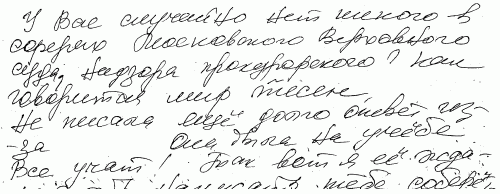 У Вас случайно нет никого в
Московского Верховного
суда, Надзора прокурорского? Как
говориться мир тесен.
Не писала ещё долго ответ из-
-за она была На учёбе
Все учат! Так вот я её жда-
написать тебе